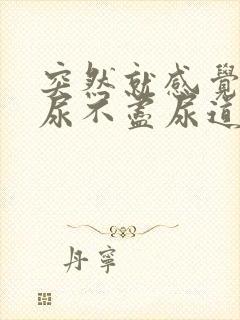 突然就感覺
尿不盡尿道
丹寧